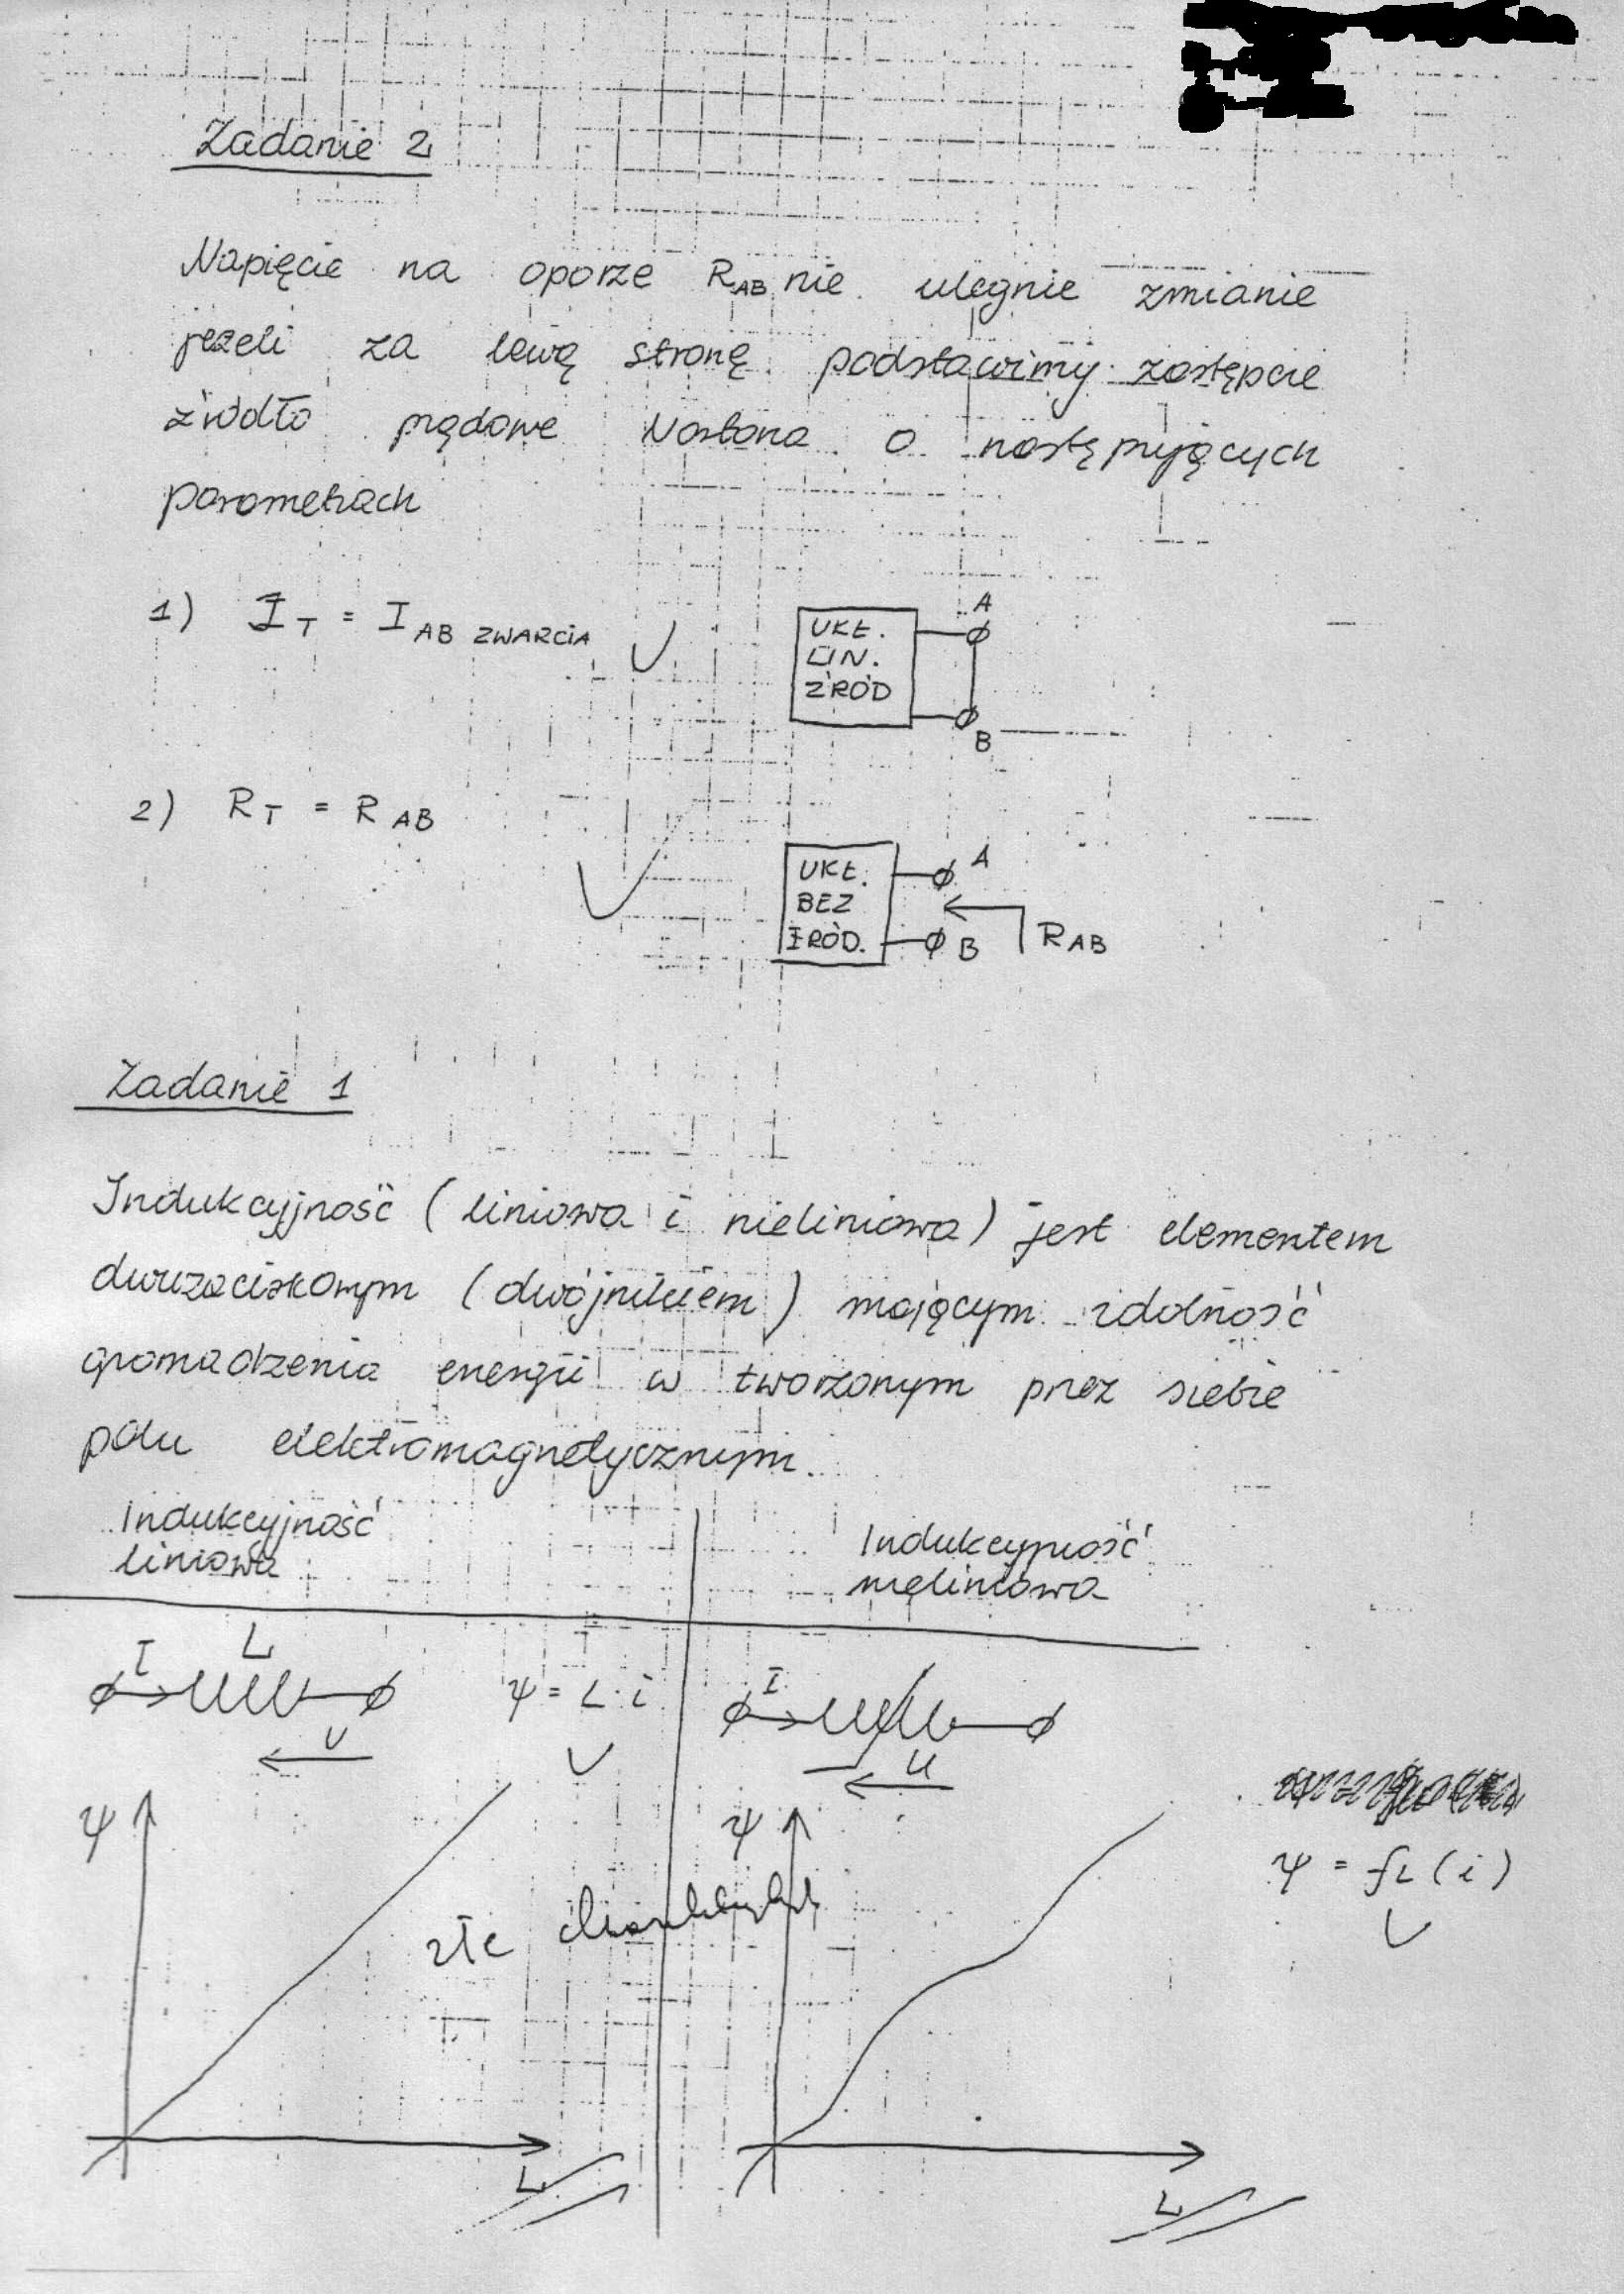 Zadanie 2
Napięcie na oporze RAB nie ulegnie zmianie
jeżeli za lewą stronę podstawimy zastępcze
źródło prądowe Nortona o następujących
parametrach
1) IT = IAB ZWARCIA
A
UKŁ.
LIN.
ŹRÓD
B
2) RT = RAB
UKŁ.
BEZ
ŹRÓD.
A
B
RAB
Zadanie 1
Indukcyjność (liniowa i nieliniowa) jest elementem
dwuzaciskowym (dwójnikiem) mającym zdolność
gromadzenia energii w tworzonym przez siebie
polu elektromagnetycznym.
Indukcyjność
liniowa
Indukcyjność
nieliniowa
I L
U
ψ = L·i
I
U
ψ
L
złe
ψ
L
ψ = fL (i)